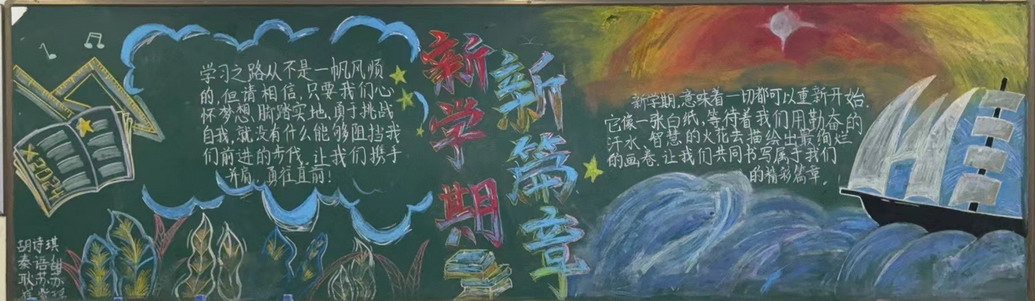 学习之路从不是一帆风顺
的,但请相信,只要我们心
怀梦想,脚踏实地,勇于挑战
自我,就没有什么能够阻挡我
们前进的步伐,让我们携手
并肩,勇往直前!
新学期
新篇章
新学期,意味着一切都可以重新开始.
它像一张白纸,等待着我们用勤奋的
汗水、智慧的火花去描绘出最绚烂
的画卷.让我们共同书写属于我们
的精彩篇章.